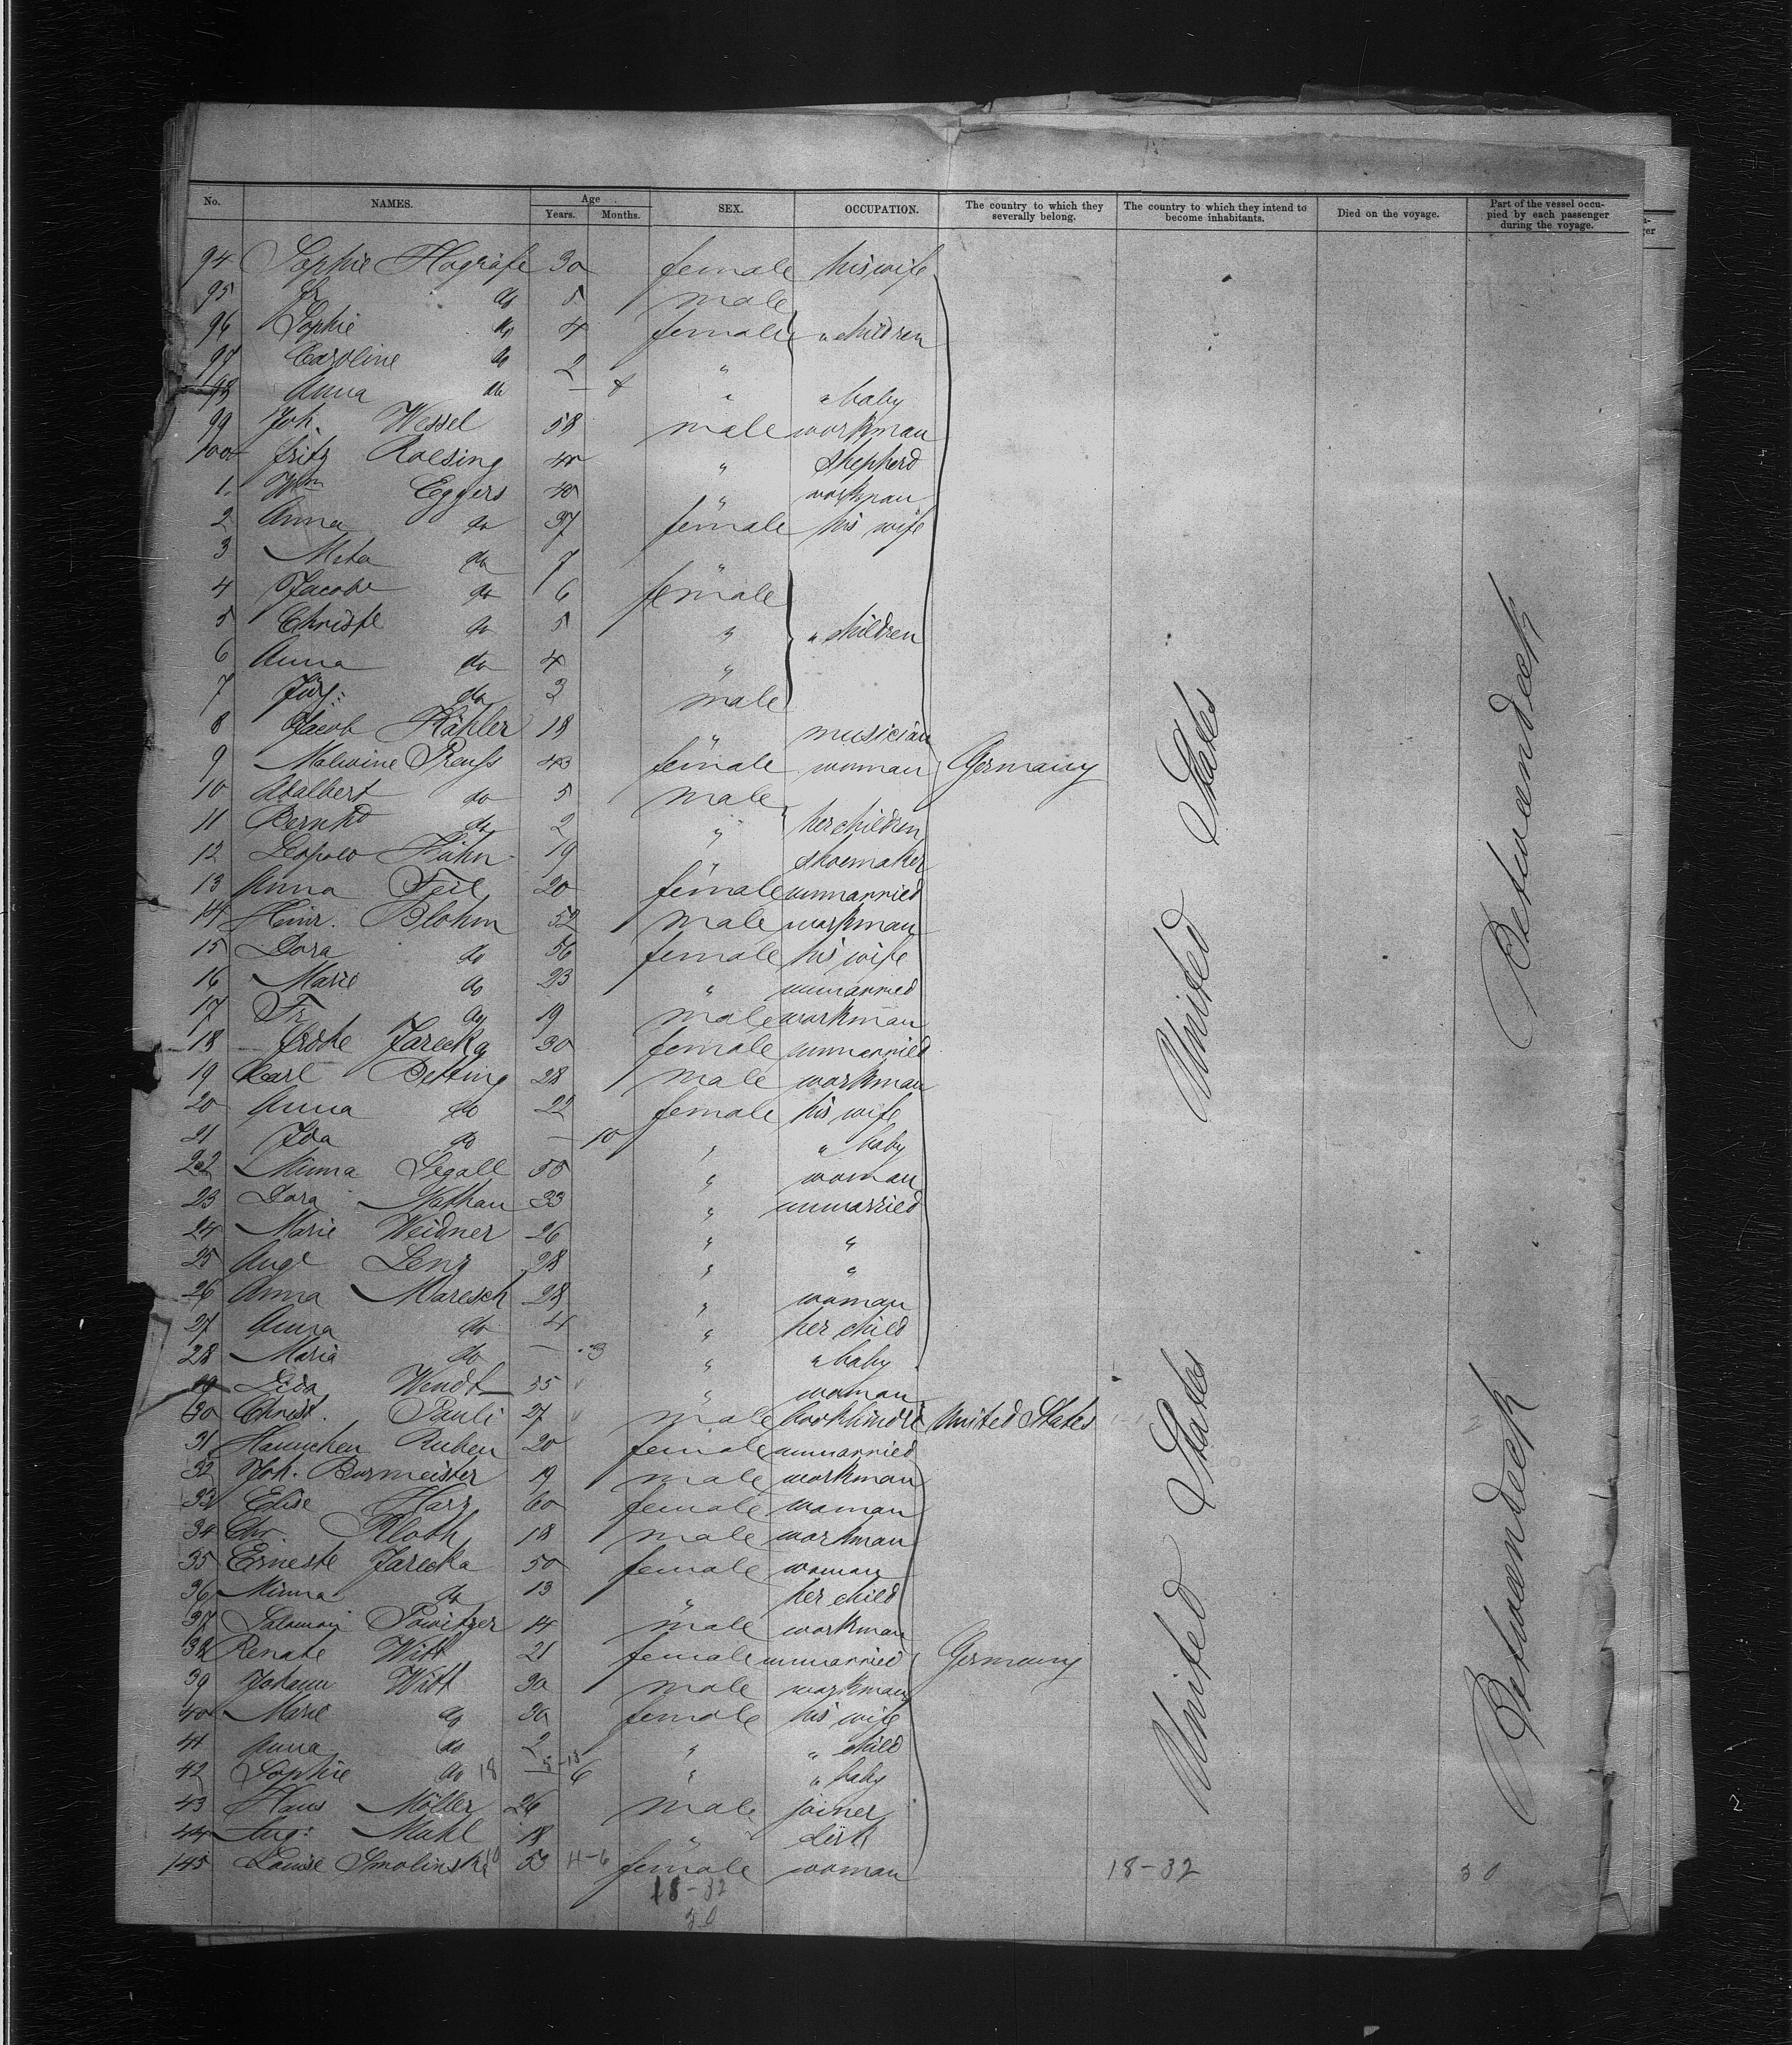 No. NAMES. Age Years. Months. SEX. OCCUPATION. The country to which they severally belong. The country to which they intend to become inhabitants. Died on the voyage. Part of the vessel occupied by each passenger during the voyage.
94 Sophie Hogräfe 30 female his wife
95 Fr do 5 male
96 Sophie do 4 female " children
97 Caroline do 2 "
98 Anna do — " " baby
99 Joh. Wessel 58 male workman
100 Fritz Roesing " shepherd
1. Wm Eggers 40 " workman
2 Anna do 37 female his wife
3 Meta do 7 "
4 Jacobe do 6 female
5 Christe do 5 " " children
6 Anna do 4 "
7 Jürg: do male
8 Jacob Kähler 18 " musician
9 Malwine Preuss 43 female woman Germany
10 Adalbert do 5 male
11 Bernhd do 2 " her children
12 Leopold Hahn 19 " shoemaker
13 Anna Feil 20 female unmarried
14 Heinr. Blohm 52 male workman
15 Dora do 56 female his wife
16 Marie do 23 " unmarried
17 Fr do 19 male workman
18 Jarecka 30 female unmarried
19 Carl Betting 28 male workman
20 Anna do 22 female his wife
21 Ida do — 10 " " baby
22 Minna Segall 55 " woman
23 Dora Nathan 33 " unmarried
24 Marie Weidner 26 " "
25 Auge Lenz 28 " "
26 Anna Maresch 28 " woman
27 Anna do 4 " her child
28 Maria do — 3 " " baby
29 Lida Wendt 55 " woman
30 Christ. Pauli 27 male United States
31 Hannchen Ruben 20 female unmarried
32 Joh. Burmeister 19 male workman
33 Elise Harz 60 female woman
34 Chr. Kloth 18 male workman
35 Erneste Jarecka 50 female woman
36 Minna do 13 " her child
37 Salamon Powitzer 14 male workman
38 Renate Witt 21 female unmarried Germany
39 Johann Witt 30 male workman
40 Marie do 30 female his wife
41 Anna do 2 " " child
42 Sophie do 18 — 6 " " baby
43 Hans Möller 26 male joiner
44 Aug: Muhl 18 " clerk
145 Louise Smolinski 53 11-6 female woman 18-32 30
18-32
30
United States
United States
Betweendeck
Betweendeck